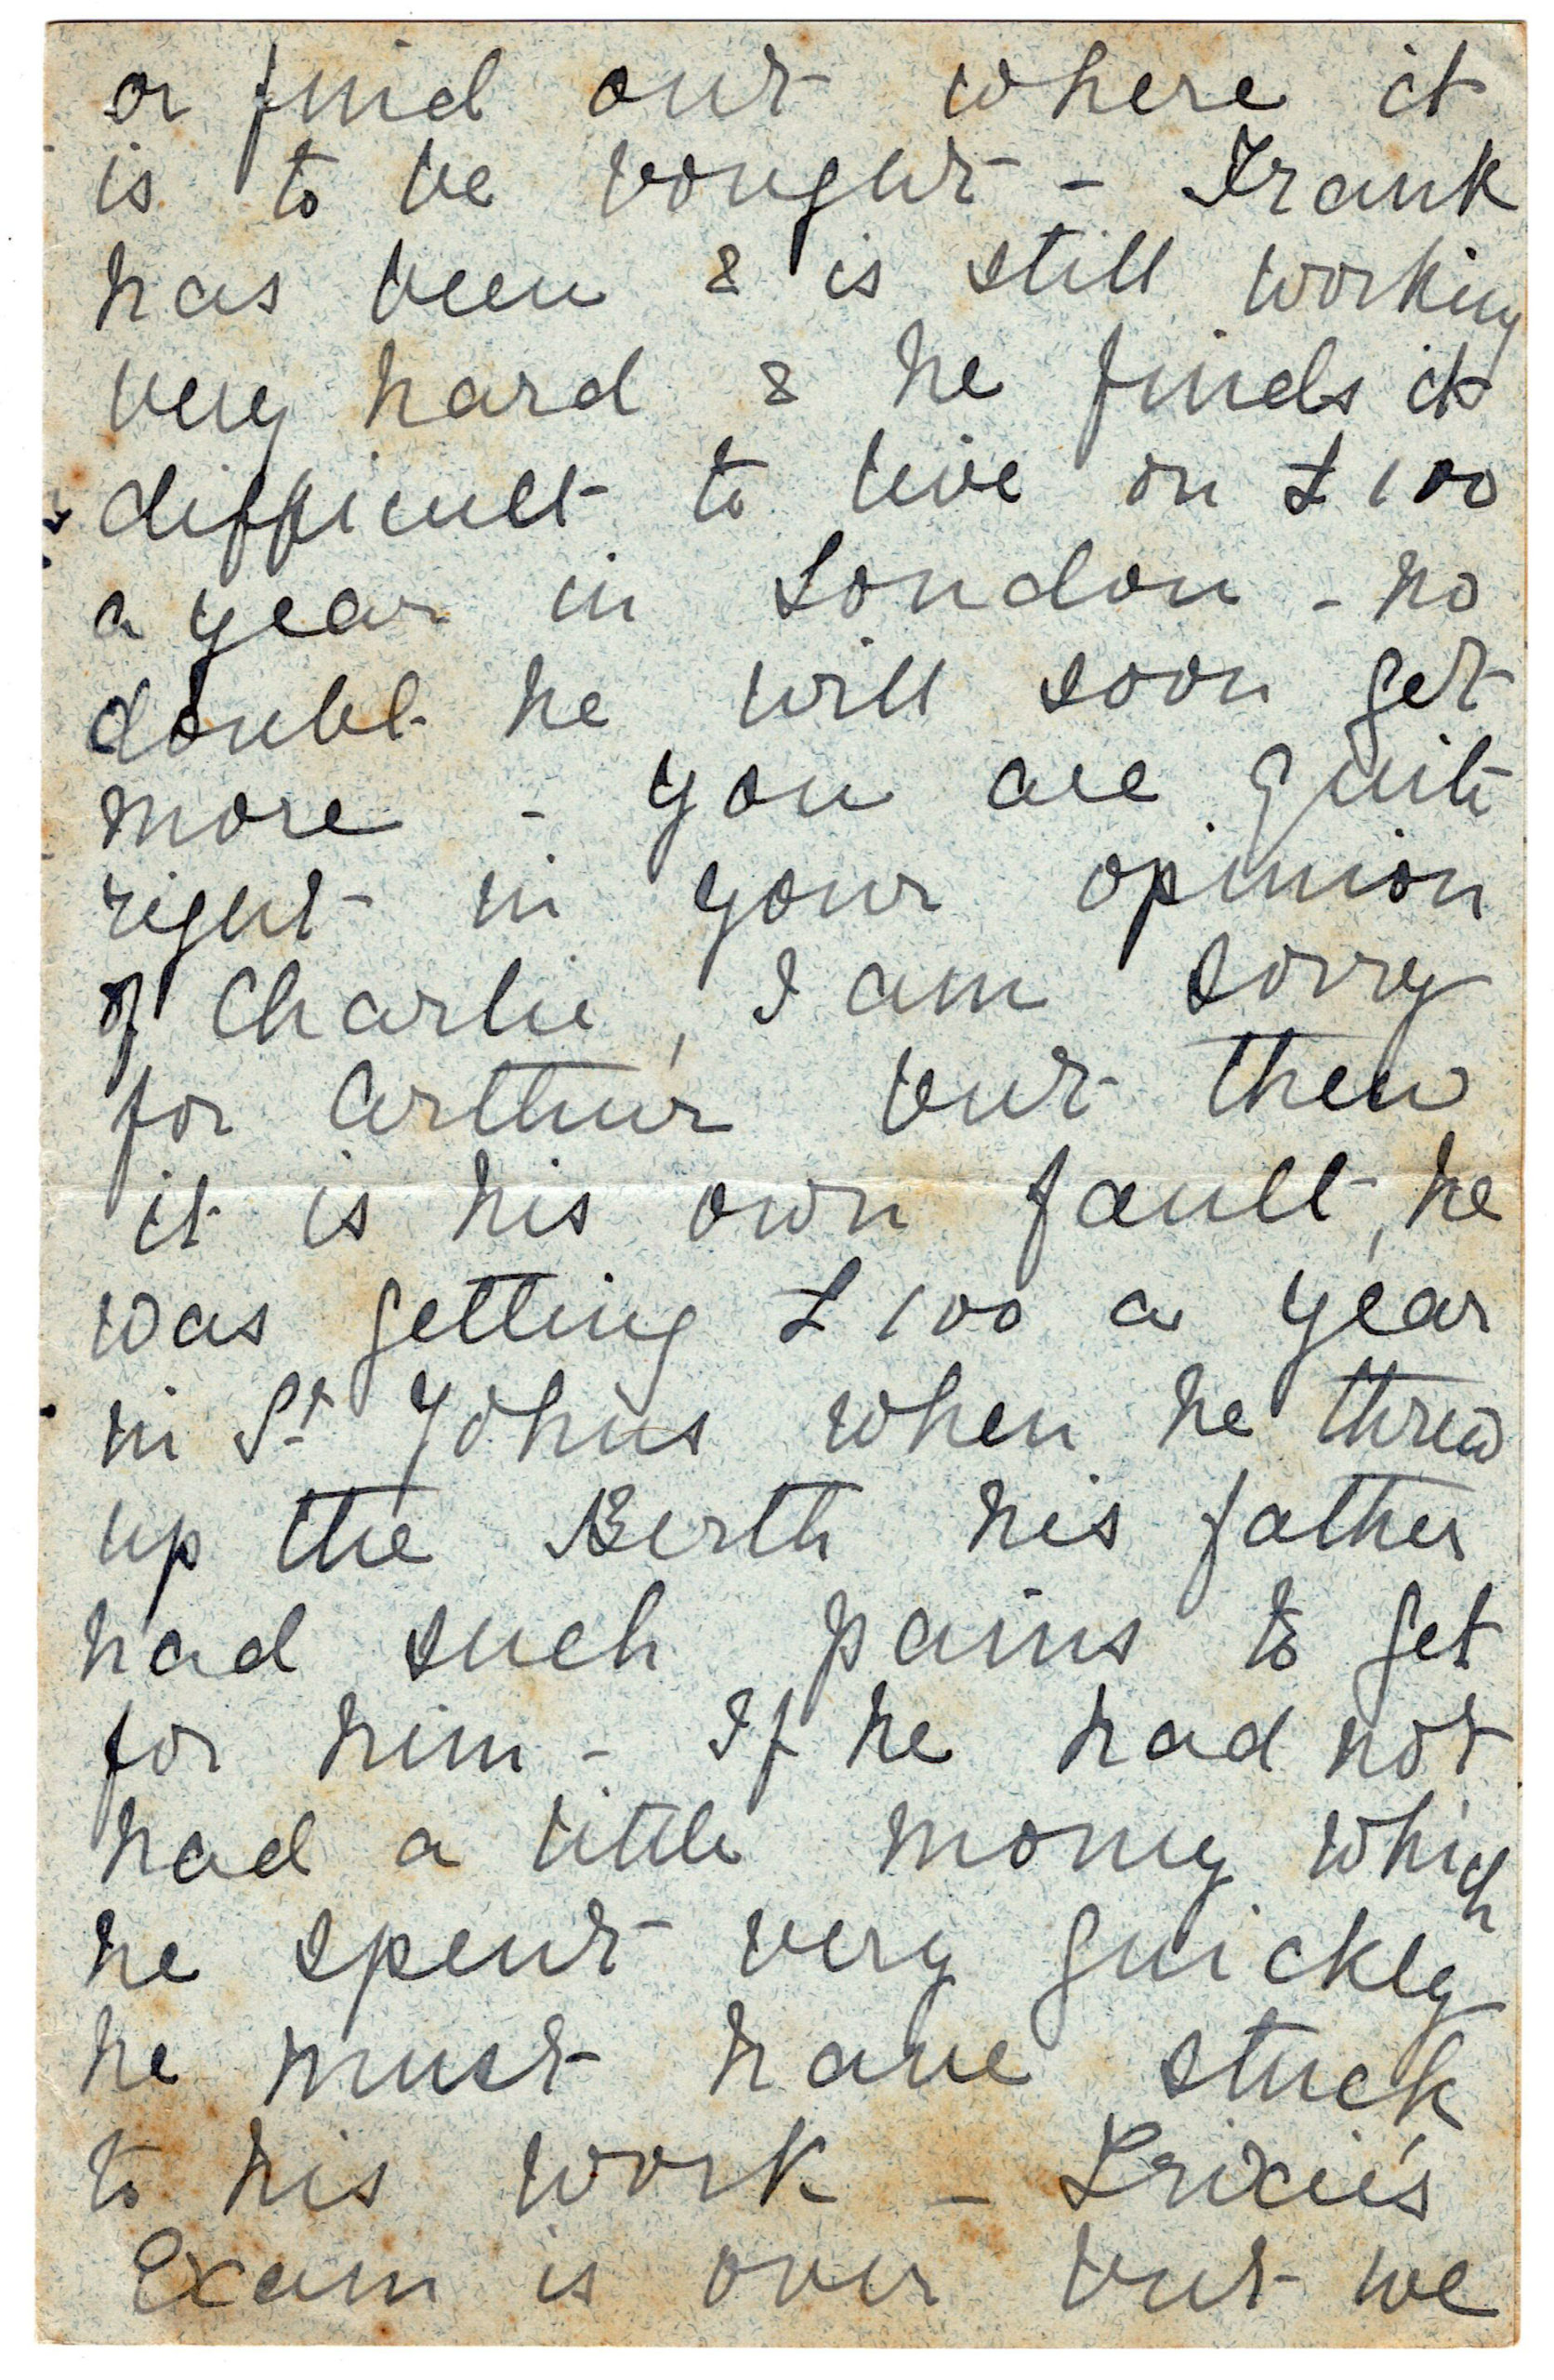 or find out where it
is to be bought - Frank
has been & is still working
very hard & he finds it
difficult to live on £100
a year in London - no
doubt he will soon get
more - you are quite
right in your opinion
of Charlie, I am sorry
for Arthur but then
it is his own fault, he
was getting £100 a year
in St Johns when he threw
up the Berth his father
had such pains to get
for him - If he had not
had a little money which
he spent very quickly
he must have stuck
to his work - Trixie's
Exam is over but we